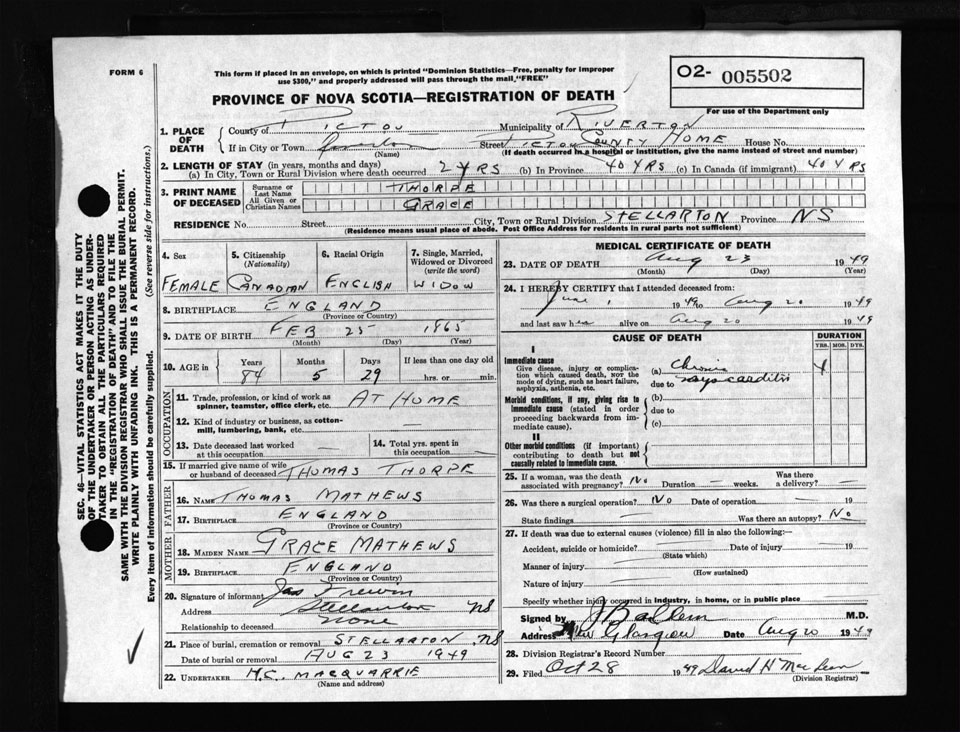 FORM 6
This form if placed in an envelope, on which is printed "Dominion Statistics—Free, penalty for improper
use $300," and properly addressed will pass through the mail, "FREE"
O2- 005502
For use of the Department only
PROVINCE OF NOVA SCOTIA—REGISTRATION OF DEATH
1. PLACE OF DEATH
County of PICTOU Municipality of RIVERTON
If in City or Town Street PICTOU COUNTY HOME House No.
(Name) (If death occurred in a hospital or institution, give the name instead of street and number)
2. LENGTH OF STAY (in years, months and days)
(a) In City, Town or Rural Division where death occurred 2 YRS (b) In Province 40 YRS (c) In Canada (if immigrant) 40 YRS
3. PRINT NAME OF DECEASED
Surname or Last Name THORPE
All Given or Christian Names GRACE
RESIDENCE No. Street City, Town or Rural Division STELLARTON Province NS
(Residence means usual place of abode. Post Office Address for residents in rural parts not sufficient)
4. Sex
FEMALE
5. Citizenship
(Nationality)
CANADIAN
6. Racial Origin
ENGLISH
7. Single, Married,
Widowed or Divorced
(write the word)
WIDOW
8. BIRTHPLACE ENGLAND
(Province or Country)
9. DATE OF BIRTH FEB 25 1865
(Month) (Day) (Year)
10. AGE in Years Months Days If less than one day old
84 5 29 hrs. or min.
OCCUPATION
11. Trade, profession, or kind of work as
spinner, teamster, office clerk, etc. AT HOME
12. Kind of industry or business, as cotton-
mill, lumbering, bank, etc. —
13. Date deceased last worked
at this occupation —
14. Total yrs. spent in
this occupation —
15. If married give name of wife
or husband of deceased THOMAS THORPE
FATHER
16. NAME THOMAS MATHEWS
17. BIRTHPLACE ENGLAND
(Province or Country)
MOTHER
18. MAIDEN NAME GRACE MATHEWS
19. BIRTHPLACE ENGLAND
(Province or Country)
20. Signature of informant Jas
Address Stellarton NS
Relationship to deceased none
21. Place of burial, cremation or removal STELLARTON NS
Date of burial or removal AUG 23 1949
22. UNDERTAKER H.C. MACQUARRIE
(Name and address)
MEDICAL CERTIFICATE OF DEATH
23. DATE OF DEATH Aug 23 1949
(Month) (Day) (Year)
24. I HEREBY CERTIFY that I attended deceased from:
June 1 1949 to Aug 20 1949
and last saw her alive on Aug 20 1949
CAUSE OF DEATH
DURATION
YRS. MOS. DYS.
I
Immediate cause
Give disease, injury or complica-
tion which caused death, NOT the
mode of dying, such as heart failure,
asphyxia, asthenia, etc.
(a) Chronic
due to myocarditis
Morbid conditions, if any, giving rise to
immediate cause (stated in order
proceeding backwards from im-
mediate cause).
(b)
due to
(c)
II
Other morbid conditions (if important)
contributing to death but not
causally related to immediate cause.
25. If a woman, was the death
associated with pregnancy? No Duration — weeks. Was there
a delivery? —
26. Was there a surgical operation? No Date of operation — 19
State findings — Was there an autopsy? No
27. If death was due to external causes (violence) fill in also the following:—
Accident, suicide or homicide? — Date of injury — 19
(State which)
Manner of injury —
(How sustained)
Nature of injury —
Specify whether injury occurred in industry, in home, or in public place
Signed by M.D.
Address New Glasgow Date Aug 20 1949
28. Division Registrar's Record Number
29. Filed Oct 28 1949 David H MacLean
(Division Registrar)
SEC. 46—VITAL STATISTICS ACT MAKES IT THE DUTY
OF THE UNDERTAKER OR PERSON ACTING AS UNDER-
TAKER TO OBTAIN ALL THE PARTICULARS REQUIRED
IN THE "REGISTRATION OF DEATH" AND TO FILE THE
SAME WITH THE DIVISION REGISTRAR WHO SHALL ISSUE THE BURIAL PERMIT.
WRITE PLAINLY WITH UNFADING INK. THIS IS A PERMANENT RECORD.
Every item of information should be carefully supplied. (See reverse side for instructions.)